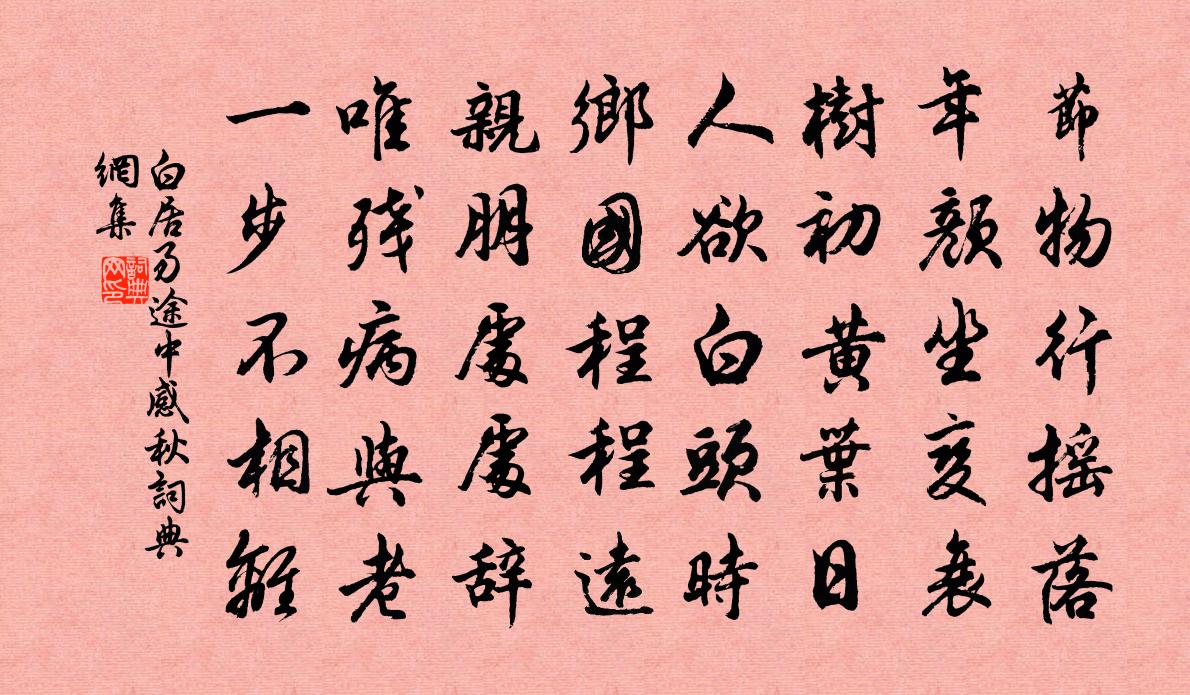 節物行摇落
年顔坐变衰
樹初黄葉日
人欲白頭時
鄉國程程遠
親朋處處辞
唯残病與老
一步不相離
白居易途中感秋詞典
網集
詞典
网印